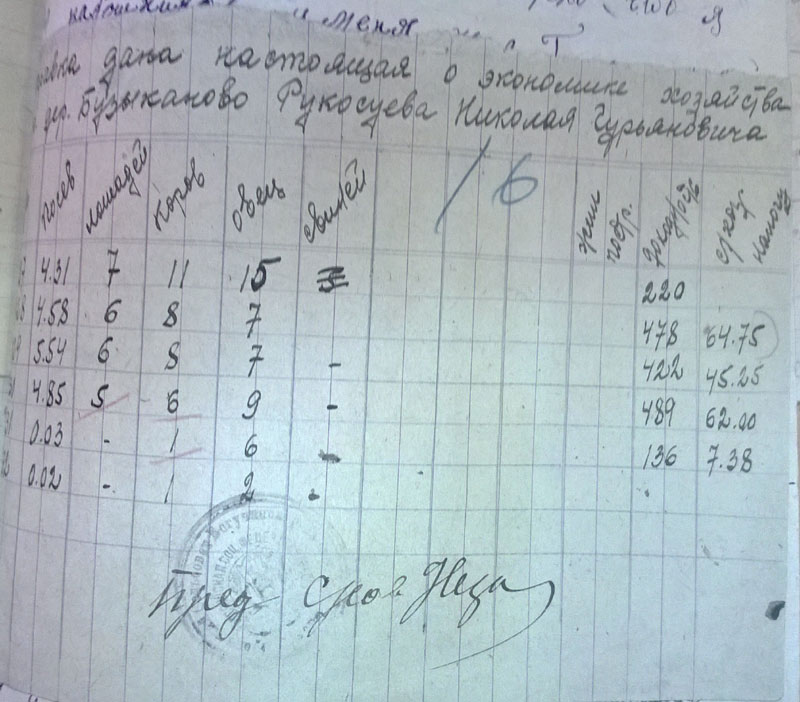 меня
дана настоящая о экономике хозяйства
дер. Бузыканово Рукосуева Николая Гурьяновича
16
посев лошадей коров овец свиней подр. налогу
4.31 7 11 15 220
4.58 6 8 7 478 64.75
5.54 6 8 7 - 422 45.25
4.85 5 6 9 - 489 62.00
0.03 - 1 6 - 136 7.38
0.02 - 1 2 -
Пред